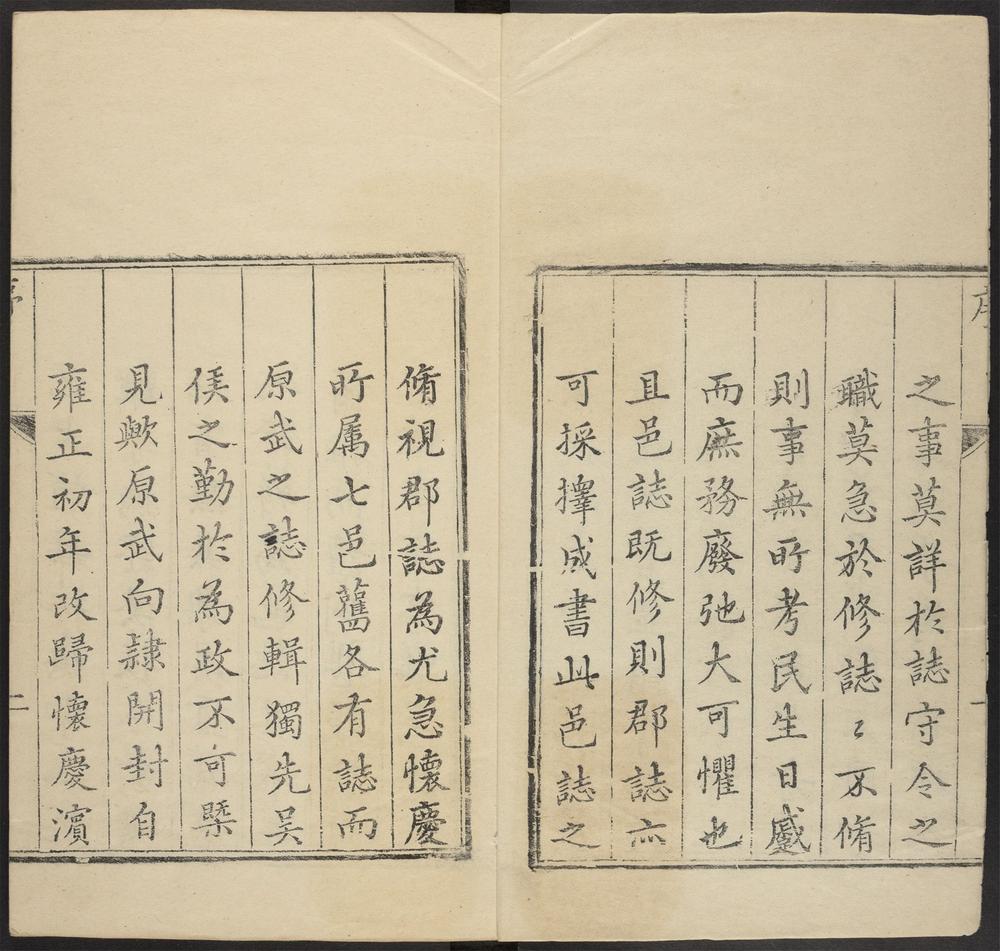 序
一
之事莫詳於誌守令之
職莫急於修誌〻不脩
則事無所考民生日蹙
而庶務廢弛大可懼也
且邑誌既修則郡誌亦
可採擇成書此邑誌之
脩視郡誌為尤急懷慶
所属七邑舊各有誌而
原武之誌修輯獨先吴
侯之勤於為政不可槩
見歟原武向隷開封自
雍正初年改歸懷慶濵
序
二